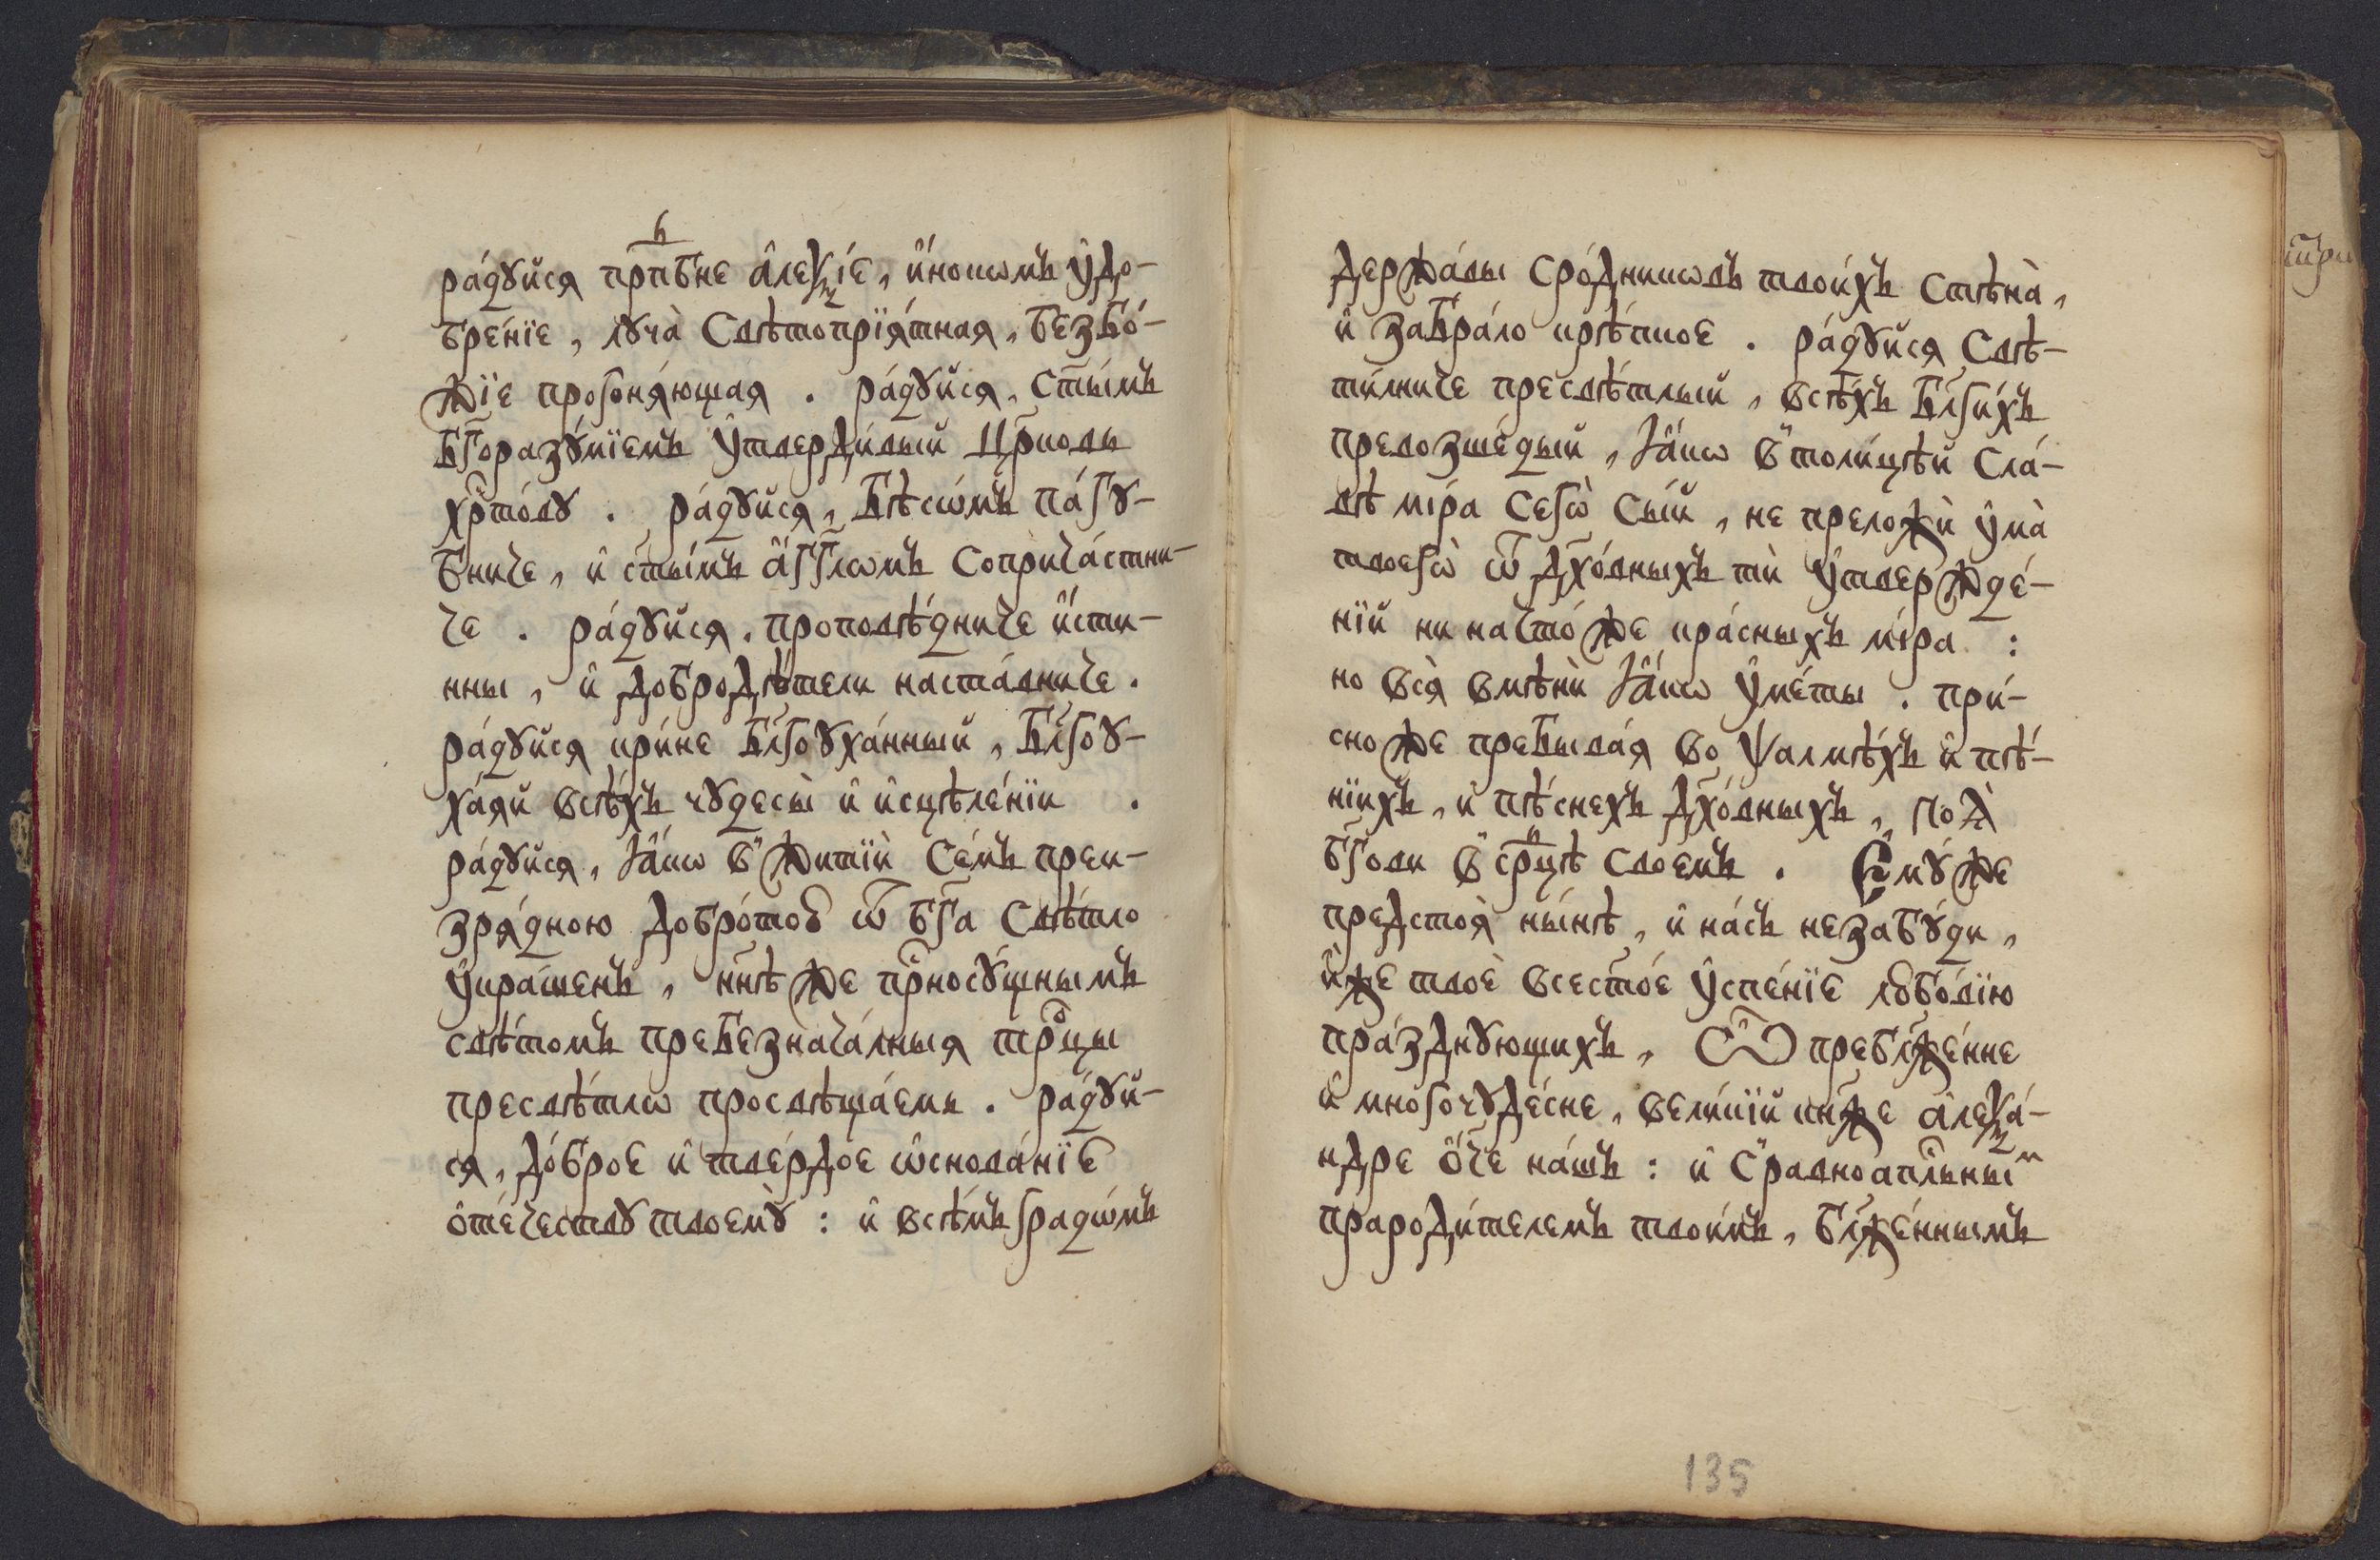 ра́дꙋйся прпⷣбне а҆леѯі́е, и҆́нокѡмъ ᲂу҆до-
бре́нїе, лꙋча̀ свѣтопрїя́тная, безбо́-
жїе прогоня́ющая. ра́дꙋйся, ст҃ы́мъ
бг҃оразꙋ́мїемъ ᲂу҆тверди́вый цр҃ковь
хрⷭ҇то́вꙋ. ра́дꙋйся, бѣсѡ́мъ па́гꙋ-
бниче, и҆ ст҃ы́мъ а҆́гг҃лѡмъ соприча́стни-
че. ра́дꙋйся, проповѣ́дниче и҆́сти-
нны, и҆ добродѣ́тели наста́вниче.
ра́дꙋйся кри́не бл҃гоꙋха́нный, бл҃гоꙋ-
ха́яй всѣ́хъ чꙋдесы̀ и҆ и҆сцѣле́нїи.
ра́дꙋйся, ꙗ҆́кѡ в житїѝ се́мъ преи-
зря́дною добро́тоꙋ ѿ бг҃а свѣ́тло
ᲂу҆кра́шенъ, нн҃ѣ же прⷭ҇носꙋ́щнымъ
свѣ́томъ пребезнача́лныя трⷪ҇цы
пресвѣ́тлѡ просвѣща́емь. ра́дꙋй-
ся, до́брое и҆ тве́рдое ѡ҆снова́нїе
ѻ҆те́чествꙋ твоемꙋ̀: и҆ всѣ́мъ градѡ́мъ
держа́вы сро́дникѡвъ твои́хъ стѣна̀,
и҆ забра́ло крѣ́пкое. ра́дꙋйся свѣ-
ти́лниче пресвѣ́тлый, всѣ́хъ бл҃ги́хъ
превозше́дый, ꙗ҆́кѡ в толи́цѣй сла́-
вѣ мі́ра сегѡ̀ сы́й, не преложѝ ᲂу҆ма̀
твоегѡ̀ ѿ дх҃о́вныхъ тѝ ᲂу҆твержде́-
нїй ни на что́ же кра́сныхъ мі́ра:
но вся̀ вмѣнѝ ꙗ҆́кѡ ᲂу҆ме́ты. при́-
сно же пребыва́я во ѱалмѣ́хъ и҆ пѣ́-
нїихъ, и҆ пѣ́снехъ дх҃о́вныхъ, поѧ̀
бг҃ови в срⷣцѣ своемъ. Е҆мꙋ́ же
предстоя̀ ны́нѣ, и҆ на́съ не забꙋ́ди,
и҆̀же твоѐ всест҃о́е ᲂу҆спе́нїе любо́вїю
пра́зднꙋющихъ, Ѽ преблж҃е́нне
и҆ многочꙋде́сне, вели́кїй кн҃же а҆леѯа́-
ндре ѻ҆́ч҃е на́шъ: и҆ с равноапⷭ҇льныⷨ
прароди́телемъ твои́мъ, блж҃е́ннымъ
135